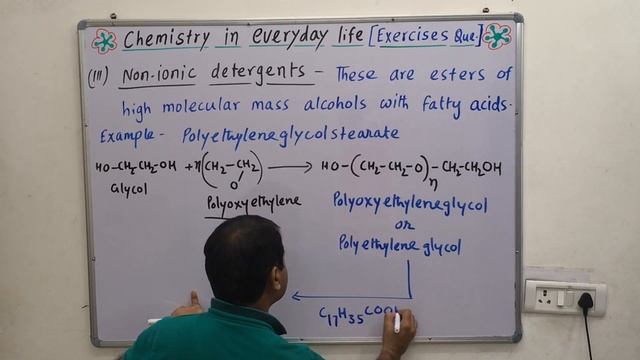 Chemistry in everyday life [Exercises Que.]
(III) Non-ionic detergents - These are esters of
high molecular mass alcohols with fatty acids.
Example - Polyethyleneglycolstearate
HO-CH₂-CH₂OH + n(CH₂-CH₂ → HO-(CH₂-CH₂-O)n-CH₂-CH₂OH
O)
Glycol
Polyoxyethylene Polyoxyethyleneglycol
or
Polyethylene glycol
C₁₇H₃₅COO